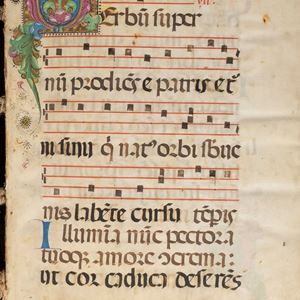 Verbu super
nu prodies e patris et
ni sinu q nat orbi sbue
nis labete cursu tepis
Illumia nuc pectora
tuoqz amore cocrema:
ut cor caduca deseres